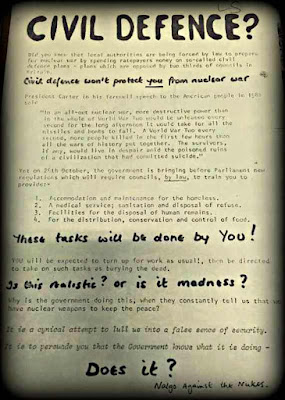 CIVIL DEFENCE?
Did you know that local authorities are being forced by law to prepare
for nuclear war by spending ratepayers money on so-called civil
defence plans - plans which are opposed by two thirds of councils in
Britain.
Civil defence won't protect you from nuclear war
President Carter in his farewell speech to the American people in 1981
said
"In an all-out nuclear war, more destructive power than
in the whole of World War Two would be unleashed every
second for the long afternoon it would take for all the
missiles and bombs to fall. A World War Two every
second, more people killed in the first few hours than
all the wars of history put together. The survivors,
if any, would live in despair amid the poisoned ruins
of a civilization that had committed suicide."
Yet on 25th October, the government is bringing before Parliament new
regulations which will require councils, by law, to train you to
provide:-
1. Accommodation and maintenance for the homeless.
2. A medical service; sanitation and disposal of refuse.
3. Facilities for the disposal of human remains.
4. For the distribution, conservation and control of food.
These tasks will be done by You!
YOU will be expected to turn up for work as usual!, then be directed
to take on such tasks as burying the dead.
Is this realistic? or is it madness?
Why is the government doing this, when they constantly tell us that we
have nuclear weapons to keep the peace?
It is a cynical attempt to lull us into a false sense of security.
It is to persuade you that the Government knows what it is doing -
Does it?
Nalgo Against the Nukes.